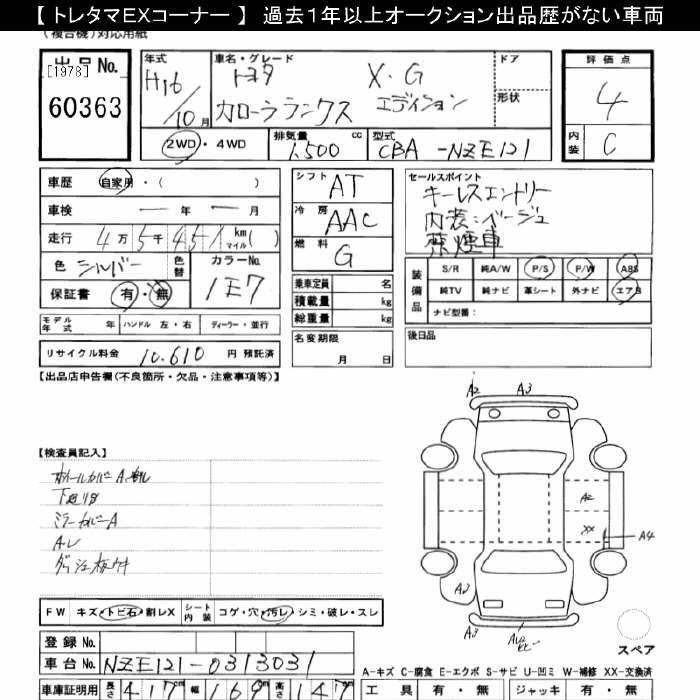 【トレタマEXコーナー】 過去1年以上オークション出品歴がない車両
(複合機)対応用紙
出品No. [1978] 60363
年式 H16/10月
車名・グレード トヨタ X・G
カローラランクス エディション
ドア
形状
評価点 4
内装 C
2WD・4WD
排気量 1,500 cc
型式 CBA-NZE121
車歴 自家用・( )
車検 ― 年 ― 月
走行 4万5千451 km マイル( )
色 シルバー 色替 カラーNo. 1E7
保証書 有・無
シフト AT
冷房 AAC
燃料 G
乗車定員 名
積載量 kg
総重量 kg
セールスポイント
キーレスエントリー
内装:ベージュ
禁煙車
装備品 S/R 純A/W P/S P/W ABS
純TV 純ナビ 革シート 外ナビ エアB
ナビ型番:
モデル年式 年 ハンドル 左・右 ディーラー・並行
名変期限 月 日
後日品
リサイクル料金 10,610 円 預託済
【出品店申告欄(不良箇所・欠品・注意事項等)】
A2 A3
【検査員記入】
ホイールカバーA
下廻りサ
ミラーカバーA
A2
XX
A4
A3
A3
FW キズ・トビ石・割レX シート内装 コゲ・穴・汚レ・シミ・破レ・スレ
スペア
登録No.
車台No. NZE121-0313031
A-キズ C-腐食 E-エクボ S-サビ U-凹ミ W-補修 XX-交換済
車庫証明用 長さ 417cm 幅 169cm 高さ 147
工具 有・無 ジャッキ 有・無